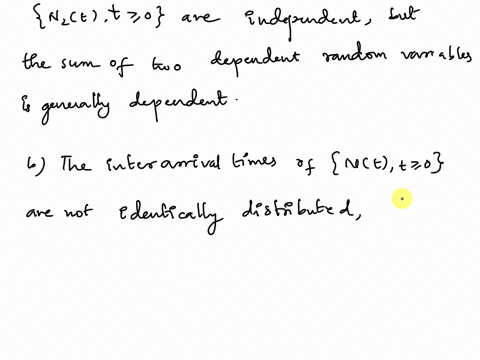 {N₂(t), t ≥ 0} are independent, but
the sum of two dependent random variables
is generally dependent.
b) The interarrival times of {N(t), t ≥ 0}
are not identically distributed,